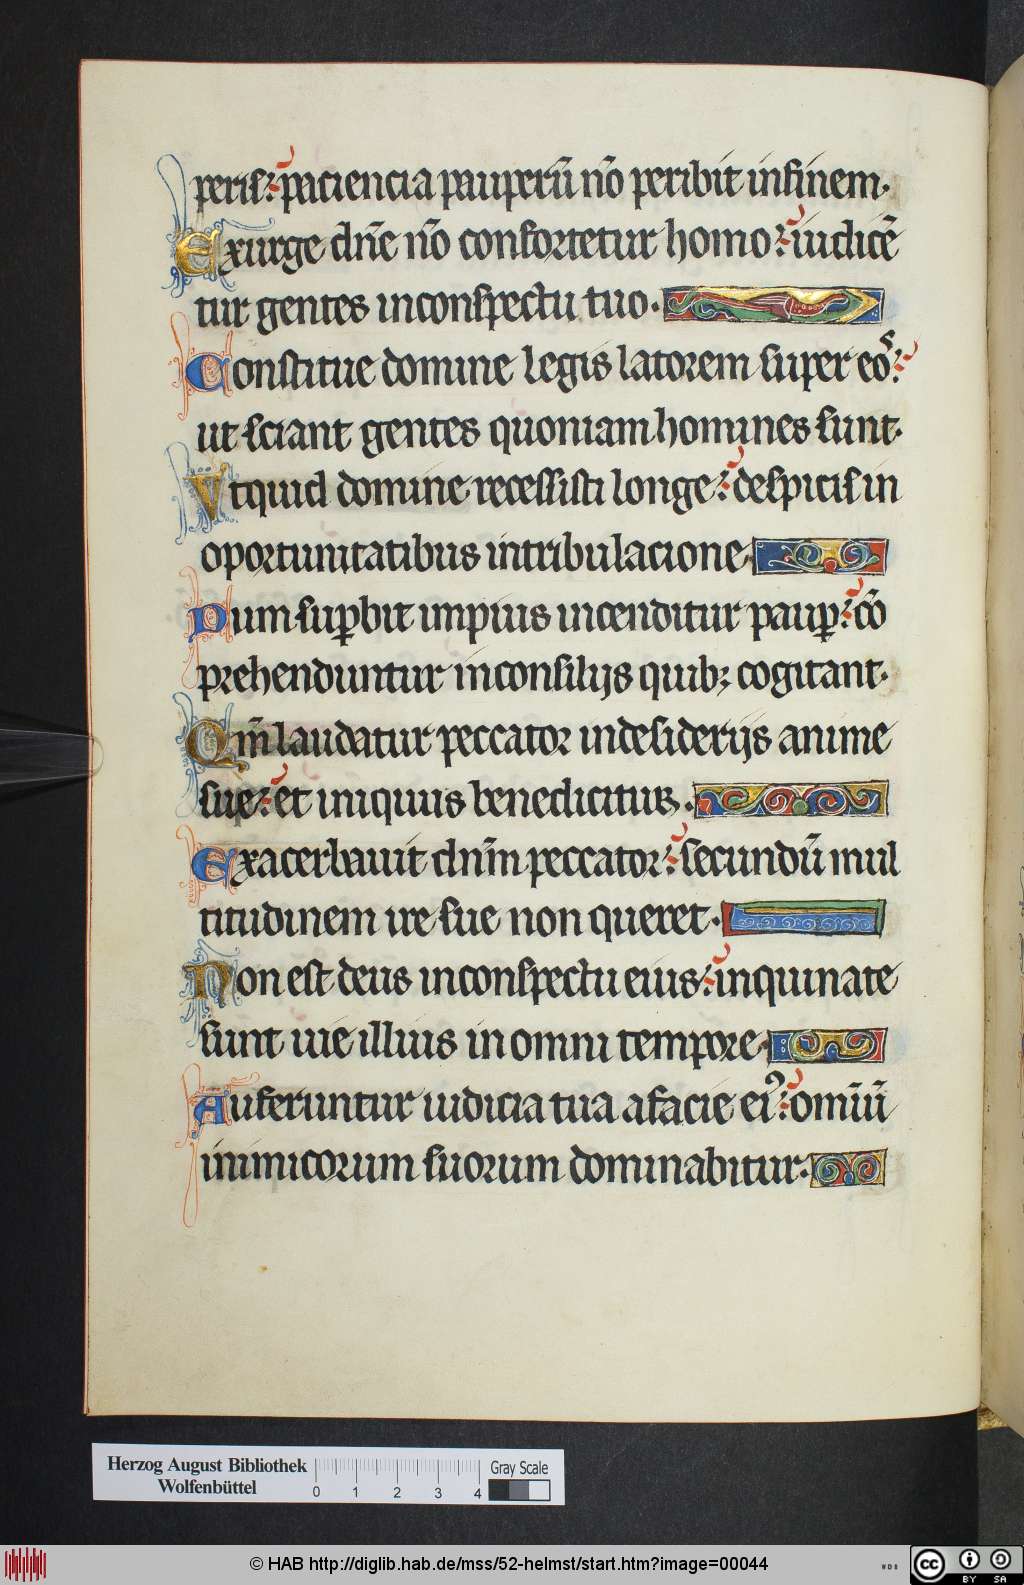 peris: paciencia pauperū nō peribit infinem.
Exurge dn̄e nō confortetur homo: iudicē
tur gentes inconspectu tuo.
Constitue domine legis latorem super eos:
ut sciant gentes quoniam homines sunt.
Vtquid domine recessisti longe: despicis in
oportunitatibus intribulacione.
Dum suꝑbit impius incenditur pauꝑ: cō
prehenduntur inconsilijs quibꝫ cogitant.
Qm̄ laudatur peccator indesiderijs anime
sue: et iniquus benedicitur.
Exacerbauit dnm̄ peccator: secundū mul
titudinem ire sue non queret.
Non est deus inconspectu eius: inquinate
sunt uie illius in omni tempore.
Auferuntur iudicia tua afacie eiꝰ: omīū
inimicorum suorum dominabitur.
Herzog August Bibliothek
Wolfenbüttel
0 1 2 3 4
Gray Scale
© HAB http://diglib.hab.de/mss/52-helmst/start.htm?image=00044
WDB
cc BY SA